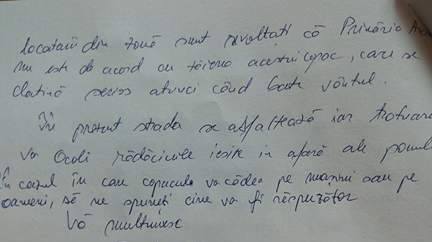 locatarii din zonă sunt revoltați că Primăria
nu este de acord cu tăierea acestui copac, care se
clatină serios atunci când bate vântul.
În prezent strada se asfaltează iar trotuarul
va ocoli rădăcinile ieșite în afară ale pomului
În cazul în care copacul va cădea pe mașini sau pe
oameni, să ne spuneți cine va fi răspunzător
Vă mulțumesc